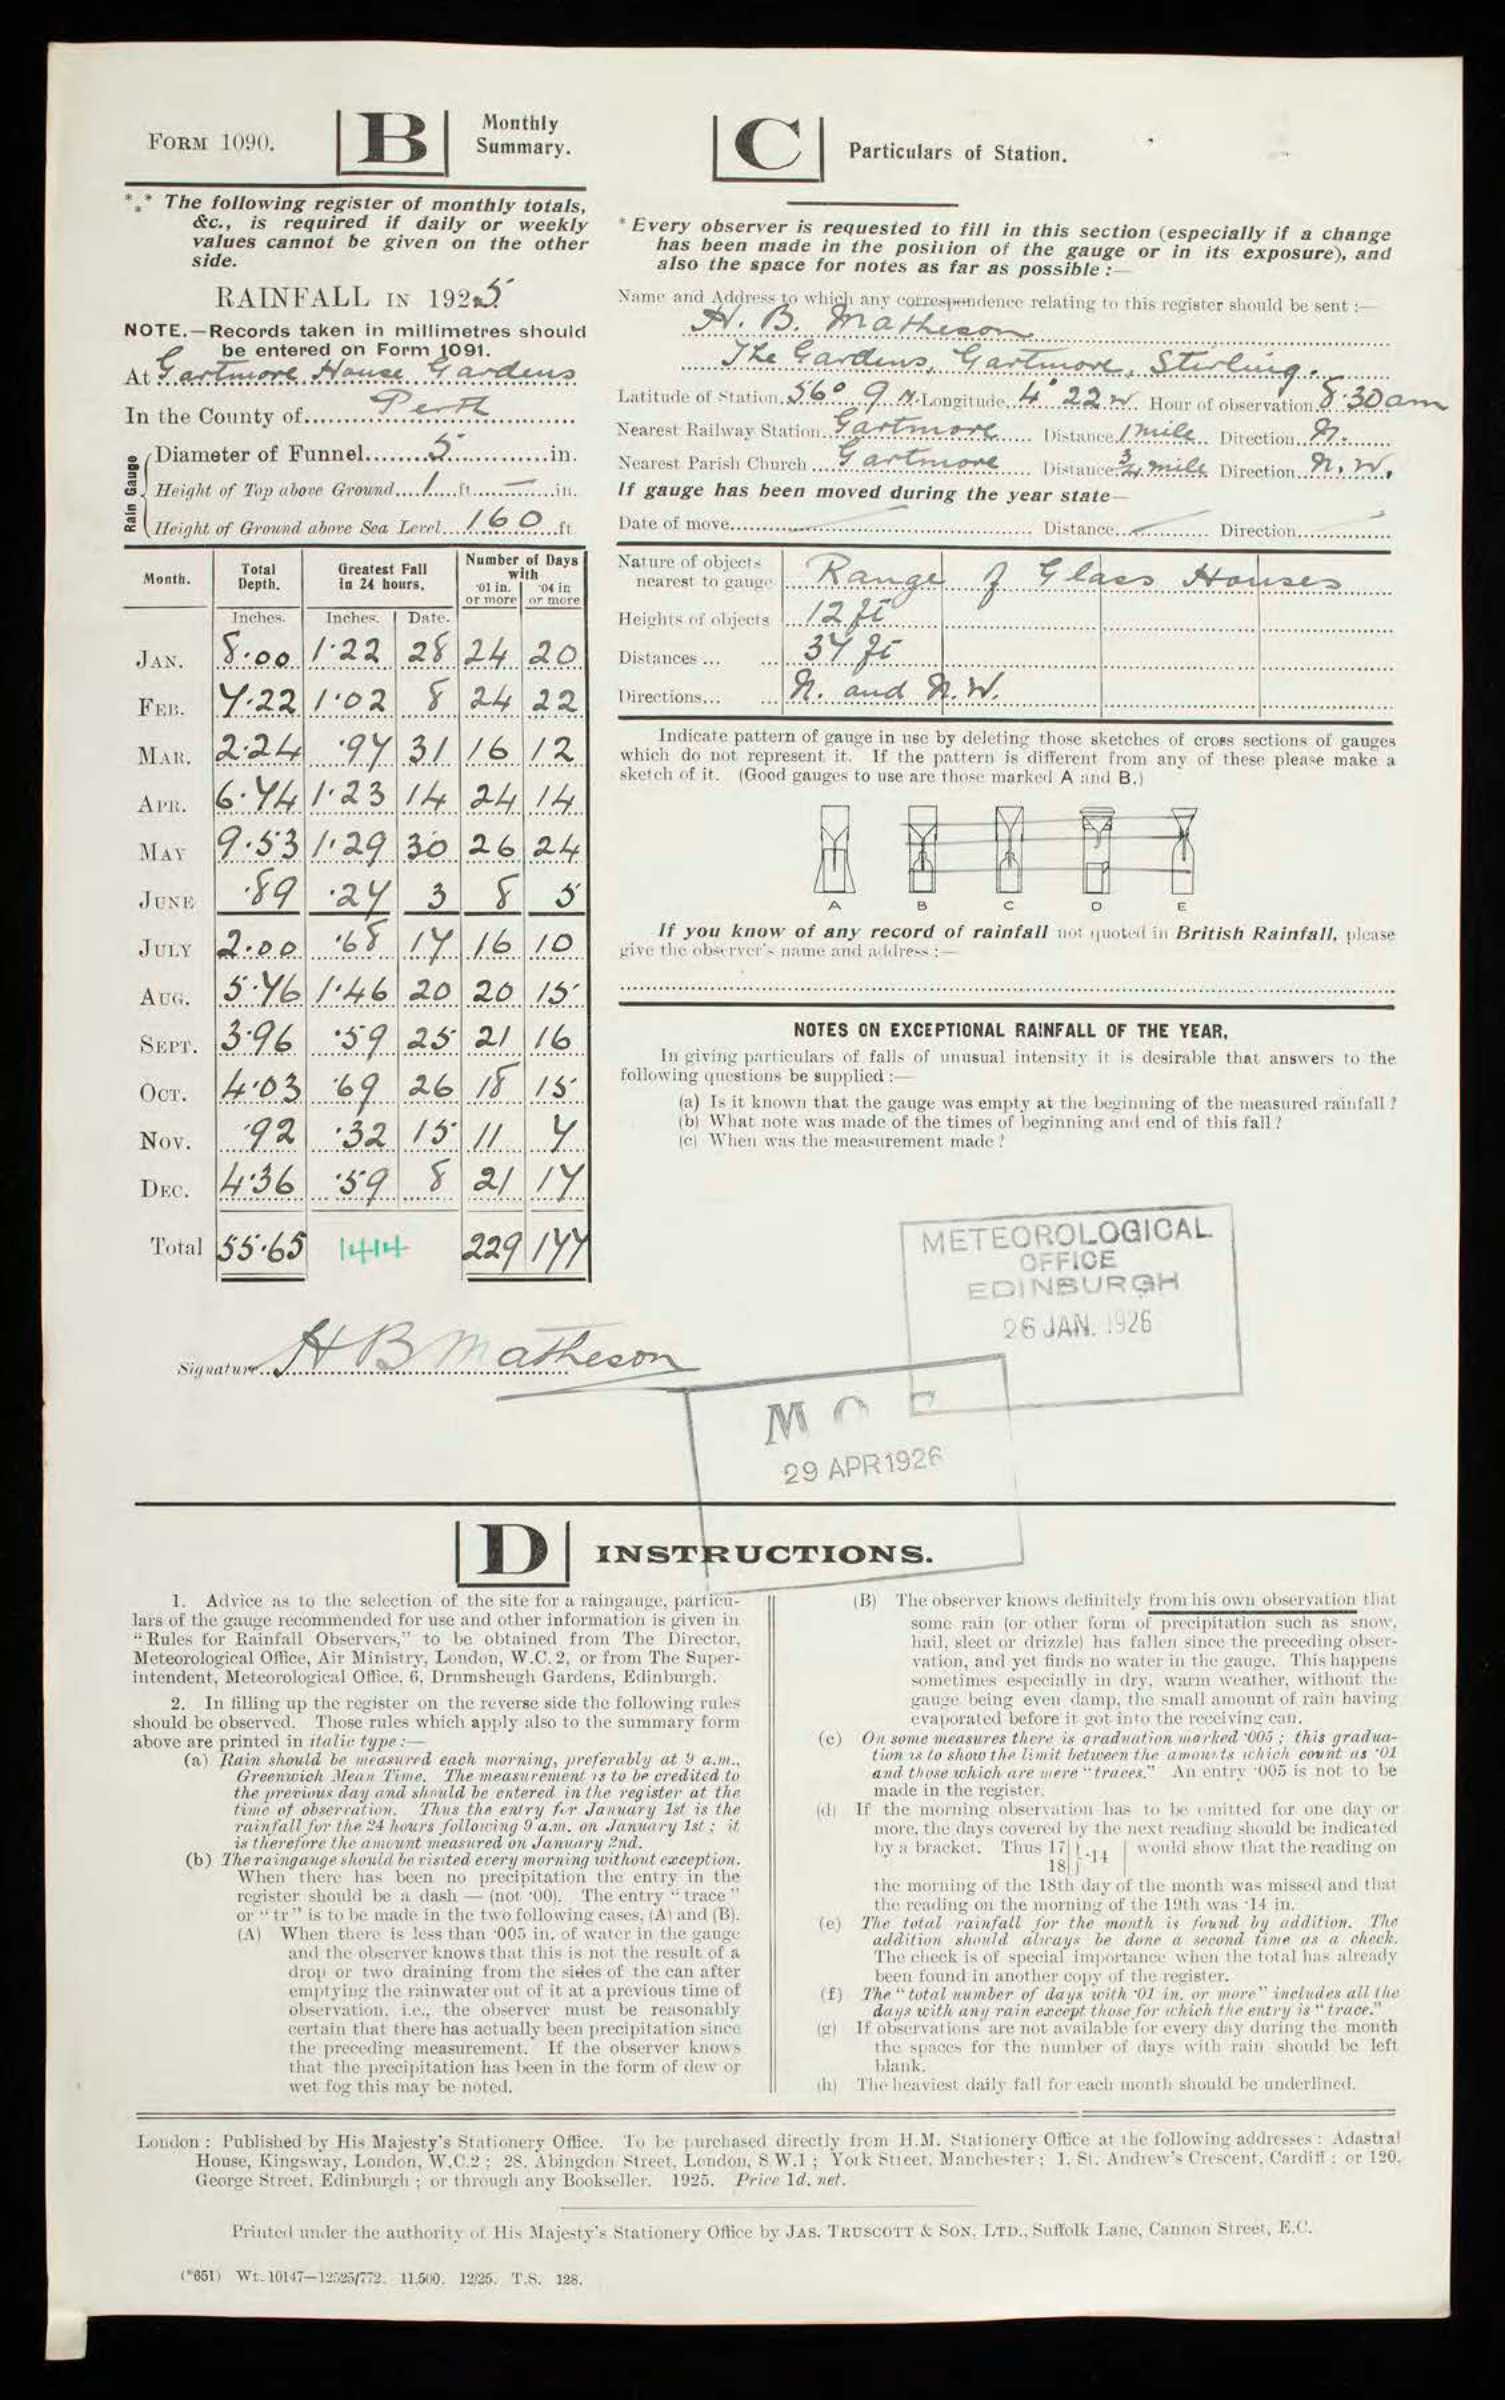 FORM 1090.
B
Monthly
Summary.
*** The following register of monthly totals,
&c., is required if daily or weekly
values cannot be given on the other
side.
RAINFALL IN 1925
NOTE.—Records taken in millimetres should
be entered on Form 1091.
At Gartmore House Gardens
In the County of Perth
Rain Gauge
Diameter of Funnel 5 in.
Height of Top above Ground 1 ft. — in.
Height of Ground above Sea Level 160 ft
Month. Total Depth. Greatest Fall in 24 hours. Number of Days with
·01 in. or more ·04 in or more
Inches. Inches. Date.
JAN. 8·00 1·22 28 24 20
FEB. 7·22 1·02 8 24 22
MAR. 2·24 ·97 31 16 12
APR. 6·74 1·23 14 24 14
MAY 9·53 1·29 30 26 24
JUNE ·89 ·27 3 8 5
JULY 2·00 ·68 17 16 10
AUG. 5·76 1·46 20 20 15
SEPT. 3·96 ·59 25 21 16
OCT. 4·03 ·69 26 18 15
NOV. ·92 ·32 15 11 7
DEC. 4·36 ·59 8 21 17
Total 55·65 1414 229 177
Signature H B Matheson
C
Particulars of Station.
* Every observer is requested to fill in this section (especially if a change
has been made in the position of the gauge or in its exposure), and
also the space for notes as far as possible :—
Name and Address to which any correspondence relating to this register should be sent :—
H. B. Matheson
The Gardens, Gartmore, Stirling.
Latitude of Station 56° 9 N. Longitude 4° 22 W. Hour of observation 8·30 am
Nearest Railway Station Gartmore Distance 1 mile Direction N.
Nearest Parish Church Gartmore Distance 3/4 mile Direction N. W.
If gauge has been moved during the year state—
Date of move Distance Direction
Nature of objects
nearest to gauge Range of Glass Houses
Heights of objects 12 ft
Distances ... ... 37 ft
Directions... ... N. and N.W.
Indicate pattern of gauge in use by deleting those sketches of cross sections of gauges
which do not represent it. If the pattern is different from any of these please make a
sketch of it. (Good gauges to use are those marked A and B.)
A B C D E
If you know of any record of rainfall not quoted in British Rainfall, please
give the observer's name and address :—
NOTES ON EXCEPTIONAL RAINFALL OF THE YEAR,
In giving particulars of falls of unusual intensity it is desirable that answers to the
following questions be supplied :—
(a) Is it known that the gauge was empty at the beginning of the measured rainfall ?
(b) What note was made of the times of beginning and end of this fall ?
(c) When was the measurement made ?
METEOROLOGICAL
OFFICE
EDINBURGH
26 JAN. 1926
M O
29 APR 1926
D
INSTRUCTIONS.
1. Advice as to the selection of the site for a raingauge, particu-
lars of the gauge recommended for use and other information is given in
“Rules for Rainfall Observers,” to be obtained from The Director,
Meteorological Office, Air Ministry, London, W.C. 2, or from The Super-
intendent, Meteorological Office, 6, Drumsheugh Gardens, Edinburgh.
2. In filling up the register on the reverse side the following rules
should be observed. Those rules which apply also to the summary form
above are printed in italic type :—
(a) Rain should be measured each morning, preferably at 9 a.m.,
Greenwich Mean Time. The measurement is to be credited to
the previous day and should be entered in the register at the
time of observation. Thus the entry for January 1st is the
rainfall for the 24 hours following 9 a.m. on January 1st ; it
is therefore the amount measured on January 2nd.
(b) The raingauge should be visited every morning without exception.
When there has been no precipitation the entry in the
register should be a dash — (not ·00). The entry “trace”
or “tr” is to be made in the two following cases, (A) and (B).
(A) When there is less than ·005 in. of water in the gauge
and the observer knows that this is not the result of a
drop or two draining from the sides of the can after
emptying the rainwater out of it at a previous time of
observation, i.e., the observer must be reasonably
certain that there has actually been precipitation since
the preceding measurement. If the observer knows
that the precipitation has been in the form of dew or
wet fog this may be noted.
(B) The observer knows definitely from his own observation that
some rain (or other form of precipitation such as snow,
hail, sleet or drizzle) has fallen since the preceding obser-
vation, and yet finds no water in the gauge. This happens
sometimes especially in dry, warm weather, without the
gauge being even damp, the small amount of rain having
evaporated before it got into the receiving can.
(c) On some measures there is graduation marked ·005 ; this gradua-
tion is to show the limit between the amounts which count as ·01
and those which are mere “traces.” An entry ·005 is not to be
made in the register.
(d) If the morning observation has to be omitted for one day or
more, the days covered by the next reading should be indicated
by a bracket. Thus 17 } ·14 would show that the reading on
18
the morning of the 18th day of the month was missed and that
the reading on the morning of the 19th was ·14 in.
(e) The total rainfall for the month is found by addition. The
addition should always be done a second time as a check.
The check is of special importance when the total has already
been found in another copy of the register.
(f) The “total number of days with ·01 in. or more” includes all the
days with any rain except those for which the entry is “trace.”
(g) If observations are not available for every day during the month
the spaces for the number of days with rain should be left
blank.
(h) The heaviest daily fall for each month should be underlined.
London : Published by His Majesty's Stationery Office. To be purchased directly from H.M. Stationery Office at the following addresses : Adastral
House, Kingsway, London, W.C.2 ; 28, Abingdon Street, London, S.W.1 ; York Street, Manchester ; 1, St. Andrew's Crescent, Cardiff ; or 120,
George Street, Edinburgh ; or through any Bookseller. 1925. Price 1d. net.
Printed under the authority of His Majesty's Stationery Office by JAS. TRUSCOTT & SON, LTD., Suffolk Lane, Cannon Street, E.C.
(*651) Wt. 10147—12525/772. 11,500. 12/25. T.S. 128.